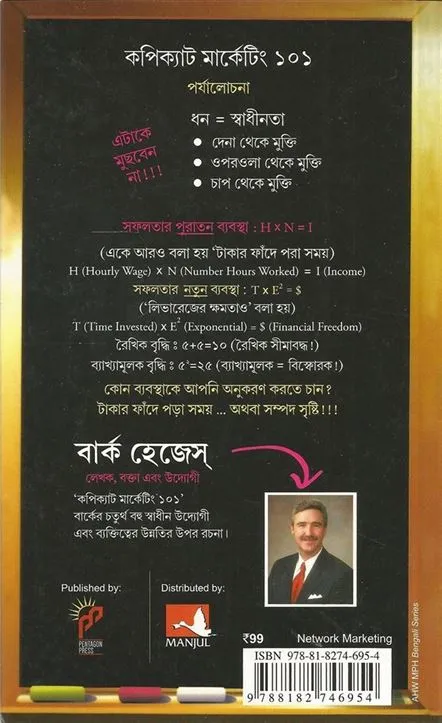 কপিক্যাট মার্কেটিং ১০১
পর্যালোচনা
ধন = স্বাধীনতা
এটাকে
মুছবেন
না!!!
• দেনা থেকে মুক্তি
• ওপরওলা থেকে মুক্তি
• চাপ থেকে মুক্তি
সফলতার পুরাতন ব্যবস্থা : H x N = I
(একে আরও বলা হয় ‘টাকার ফাঁদে পরা সময়)
H (Hourly Wage) x N (Number Hours Worked) = I (Income)
সফলতার নতুন ব্যবস্থা : T x E² = $
(‘লিভারেজের ক্ষমতাও’ বলা হয়)
T (Time Invested) x E² (Exponential) = $ (Financial Freedom)
রৈখিক বৃদ্ধি : ৫+৫=১০ (রৈখিক সীমাবদ্ধ!)
ব্যাখ্যামূলক বৃদ্ধি : ৫²=২৫ (ব্যাখ্যামূলক = বিস্ফোরক!)
কোন ব্যবস্থাকে আপনি অনুকরণ করতে চান?
টাকার ফাঁদে পড়া সময় ... অথবা সম্পদ সৃষ্টি!!!
বার্ক হেজেস্
লেখক, বক্তা এবং উদ্যোগী
‘কপিক্যাট মার্কেটিং ১০১’
বার্কের চতুর্থ বহু স্বাধীন উদ্যোগী
এবং ব্যক্তিত্বের উন্নতির উপর রচনা।
Published by:
PENTAGON
PRESS
Distributed by:
MANJUL
₹99
Network Marketing
ISBN 978-81-8274-695-4
9 788182 746954
AHW MPH Bengali Series